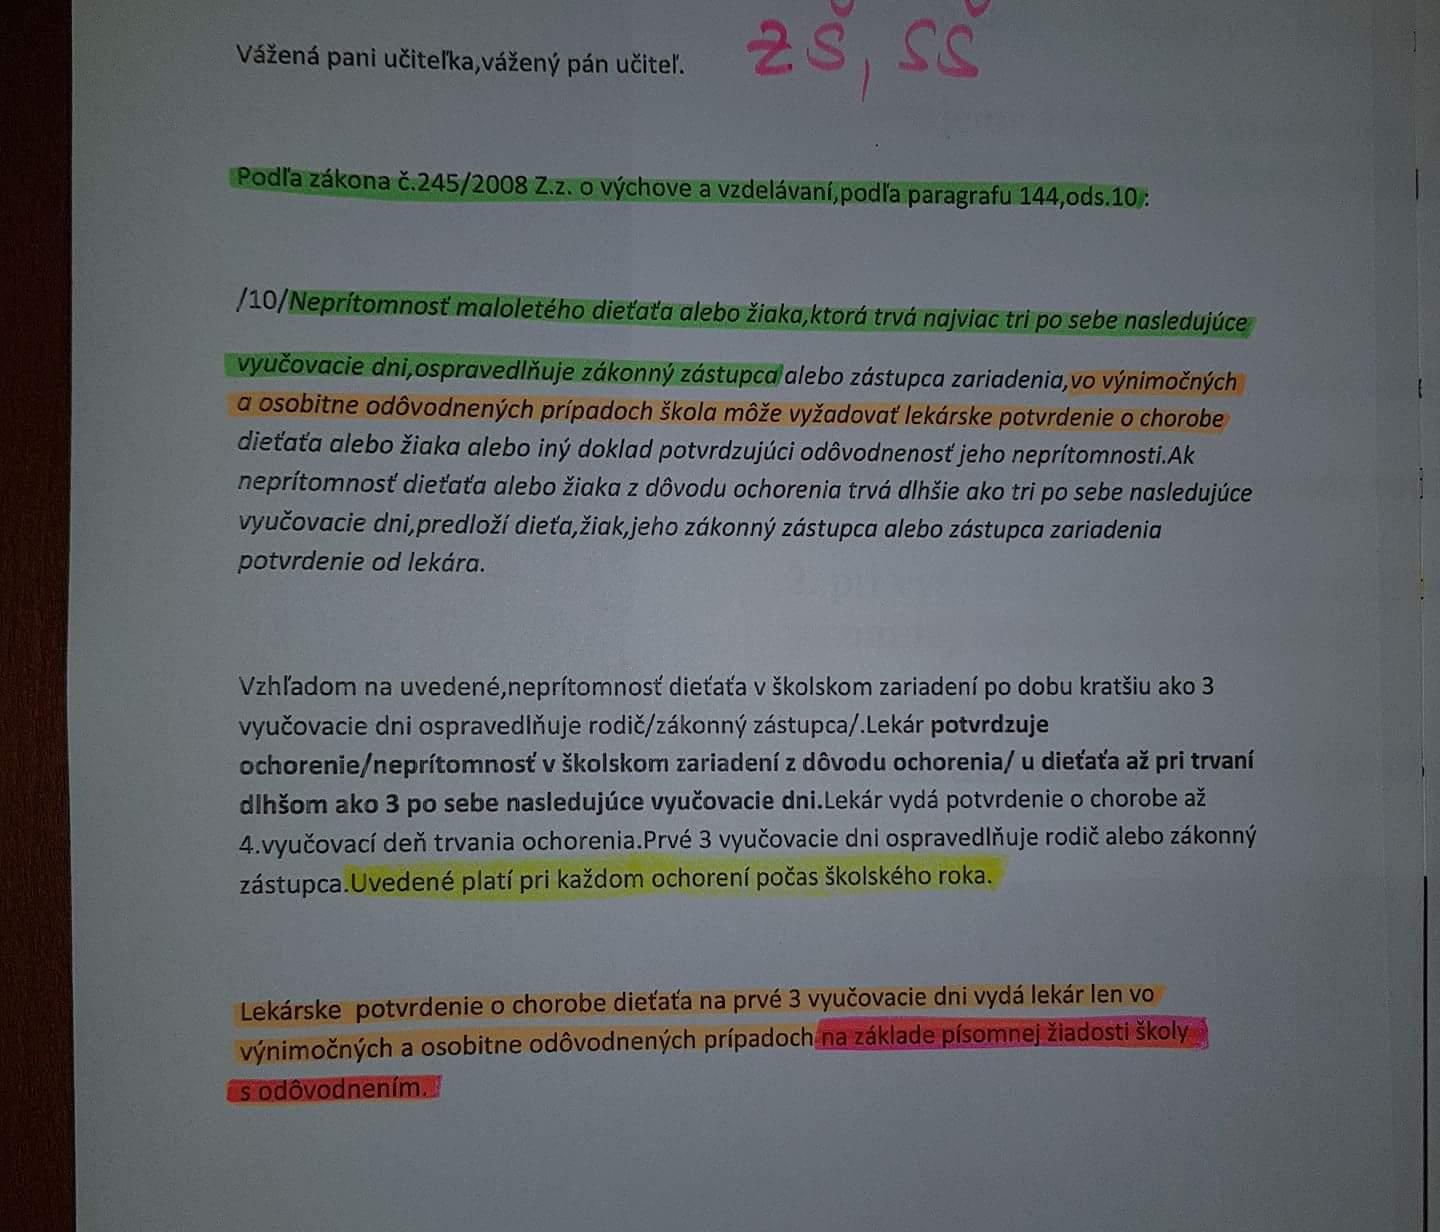 ZŠ, SŠ
Vážená pani učiteľka,vážený pán učiteľ.
Podľa zákona č.245/2008 Z.z. o výchove a vzdelávaní,podľa paragrafu 144,ods.10 :
/10/Neprítomnosť maloletého dieťaťa alebo žiaka,ktorá trvá najviac tri po sebe nasledujúce
vyučovacie dni,ospravedlňuje zákonný zástupca alebo zástupca zariadenia,vo výnimočných
a osobitne odôvodnených prípadoch škola môže vyžadovať lekárske potvrdenie o chorobe
dieťaťa alebo žiaka alebo iný doklad potvrdzujúci odôvodnenosť jeho neprítomnosti.Ak
neprítomnosť dieťaťa alebo žiaka z dôvodu ochorenia trvá dlhšie ako tri po sebe nasledujúce
vyučovacie dni,predloží dieťa,žiak,jeho zákonný zástupca alebo zástupca zariadenia
potvrdenie od lekára.
Vzhľadom na uvedené,neprítomnosť dieťaťa v školskom zariadení po dobu kratšiu ako 3
vyučovacie dni ospravedlňuje rodič/zákonný zástupca/.Lekár potvrdzuje
ochorenie/neprítomnosť v školskom zariadení z dôvodu ochorenia/ u dieťaťa až pri trvaní
dlhšom ako 3 po sebe nasledujúce vyučovacie dni.Lekár vydá potvrdenie o chorobe až
4.vyučovací deň trvania ochorenia.Prvé 3 vyučovacie dni ospravedlňuje rodič alebo zákonný
zástupca.Uvedené platí pri každom ochorení počas školského roka.
Lekárske  potvrdenie o chorobe dieťaťa na prvé 3 vyučovacie dni vydá lekár len vo
výnimočných a osobitne odôvodnených prípadoch na základe písomnej žiadosti školy
s odôvodnením.